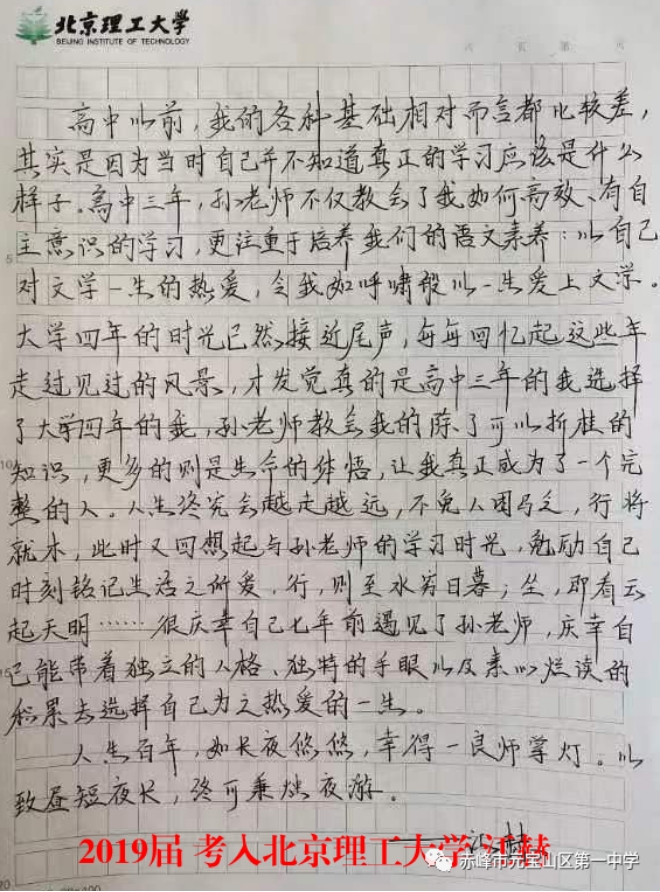 北京理工大学
BEIJING INSTITUTE OF TECHNOLOGY
共 页 第 页
高中以前,我的各科基础相对而言都比较差,
其实是因为当时自己并不知道真正的学习应该是什么
样子。高中三年,孙老师不仅教会了我如何高效、有自
主意识的学习,更注重于培养我们的语文素养:以自己
对文学一生的热爱,令我如呼啸般以一生爱上文学。
大学四年的时光已然接近尾声,每每回忆起这些年
走过见过的风景,才发觉真的是高中三年的我选择
了大学四年的我,孙老师教会我的除了可以折桂的
知识,更多的则是生命的体悟,让我真正成为了一个完
整的人。人生终究会越走越远,不免人困马乏,行将
就木,此时又回想起与孙老师的学习时光,勉励自己
时刻铭记生活之所爱,行,则至水穷日暮;坐,即看云
起天明……很庆幸自己七年前遇见了孙老师,庆幸自
己能带着独立的人格、独特的手眼以及素以烂读的
积累去选择自己为之热爱的一生。
人生百年,如长夜悠悠,幸得一良师掌灯。以
致昼短夜长,终可秉烛夜游。
2019届 考入北京理工大学
赤峰市元宝山区第一中学
5
10
15
20